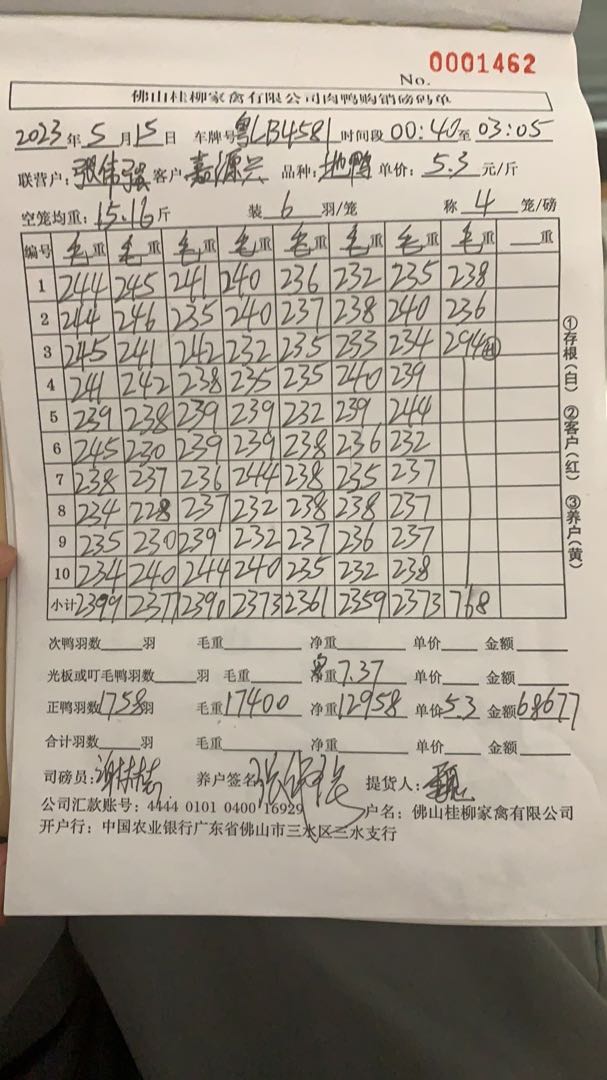 0001462
No.
佛山桂柳家禽有限公司肉鸭购销磅码单
2023年5月15日 车牌号粤LB4581时间段00:40至03:05
联营户:张伟强客户嘉源兴 品种: 单价:5.3元/斤
空笼均重:15.16斤 装6羽/笼 称4笼/磅
编号 毛重 毛重 毛重 毛重 毛重 毛重 毛重 毛重 重
1 244 245 241 240 236 232 235 238
2 244 246 235 240 237 238 240 236
3 245 241 242 232 235 233 234 294
4 241 242 238 235 235 240 239
5 239 238 239 239 232 239 244
6 245 230 239 239 238 236 232
7 238 237 236 244 238 235 237
8 234 228 237 232 238 238 237
9 235 230 239 232 237 236 237
10 234 240 244 240 235 232 238
小计 2399 2371 2390 2373 2361 2359 2373 768
①存根(白) ②客户(红) ③养户(黄)
次鸭羽数 羽 毛重 净重 单价 金额
光板或叮毛鸭羽数 羽 毛重 重7.37 单价 金额
正鸭羽数1758羽 毛重17400 净重12958 单价5.3 金额68677
合计羽数 羽 毛重 净重 单价 金额
司磅员: 养户签名 提货人:
公司汇款账号:4444 0101 0400 16929 户名:佛山桂柳家禽有限公司
开户行:中国农业银行广东省佛山市三水区三水支行